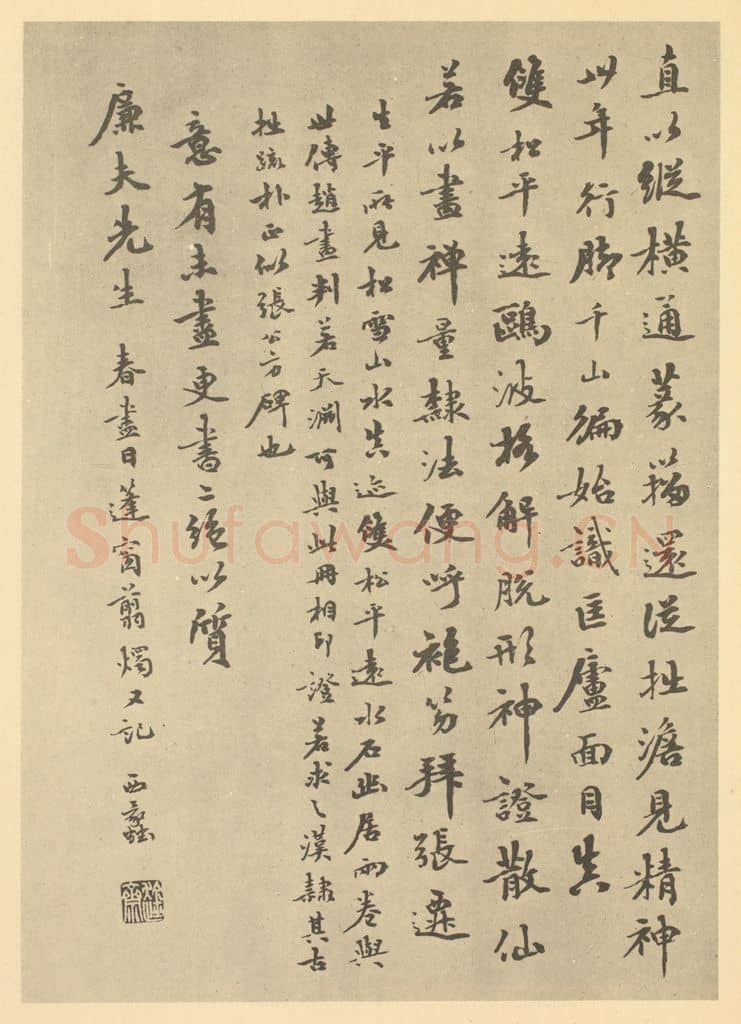 直以縱橫通篆籀還從拙澹見精神
卅年行腳千山徧始識匡廬面目真
雙松平遠鷗波格解脫形神證散仙
若以畫禪量隸法便呼袍笏拜張遷
生平所見松雪山水真迹雙松平遠水石幽居兩卷與
世傳趙畫判若天淵可與此冊相印證若求之漢隸其古
拙疏朴正似張公方碑也
意有未盡更書二絕以質
廉夫先生 春盡日篷窗翦燭又記 西蠡
Shufawang.CN